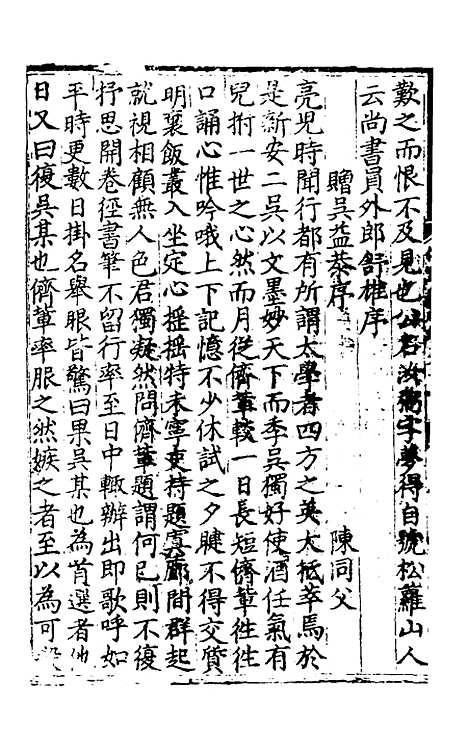 歎之而恨不及見也公名汝弼字夢得自號松蘿山人
云尚書員外郎舒雄序
贈吳益恭序
陳同父
亮兒時聞行都有所謂太學者四方之英大抵萃焉於
是新安二吳以文墨妙天下而季吳獨好使酒任氣有
兒撫一世之心然而月從儕軰較一日長短儕軰徃徃
口誦心惟吟哦上下記憶不少休試之夕睫不得交質
明裹飯叢入坐定心揺揺特未寧吏持題寘廊間群起
就視相顧無人色君獨凝然問儕軰題謂何已則不復
抒思開卷徑書筆不留行率至日中輙辦出即歌呼如
平時更數日掛名舉眼皆驚曰果吳某也為首選者他
日又曰復吳某也儕軰率服之然嫉之者至以為可殺